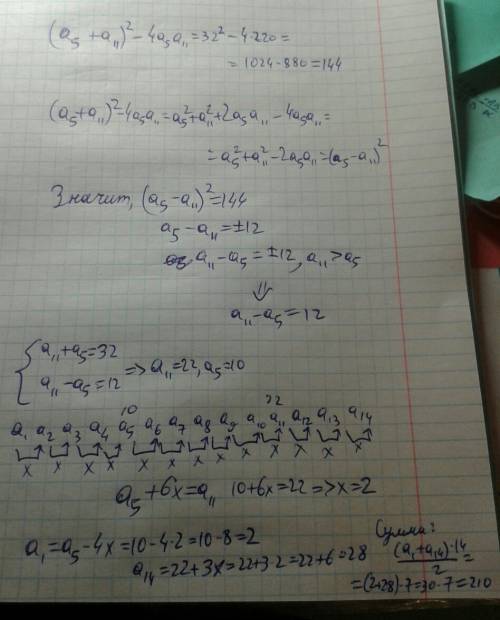 (a₅ + a₁₁)² - 4a₅a₁₁ = 32² - 4·220 =
= 1024 - 880 = 144
(a₅ + a₁₁)² - 4a₅a₁₁ = a₅² + a₁₁² + 2a₅a₁₁ - 4a₅a₁₁ =
= a₅² + a₁₁² - 2a₅a₁₁ = (a₅ - a₁₁)²
Значит, (a₅ - a₁₁)² = 144
a₅ - a₁₁ = ±12
a₁₁ - a₅ = ±12, a₁₁ > a₅
⇓
a₁₁ - a₅ = 12
{ a₁₁ + a₅ = 32
a₁₁ - a₅ = 12 => a₁₁ = 22, a₅ = 10
10 22
a₁ a₂ a₃ a₄ a₅ a₆ a₇ a₈ a₉ a₁₀ a₁₁ a₁₂ a₁₃ a₁₄
x x x x x x x x x x x x x
a₅ + 6x = a₁₁ 10 + 6x = 22 => x = 2
a₁ = a₅ - 4x = 10 - 4·2 = 10 - 8 = 2
a₁₄ = 22 + 3x = 22 + 3·2 = 22 + 6 = 28
Сумма:
(a₁ + a₁₄)·14 / 2 =
= (2+28)·7 = 30·7 = 210